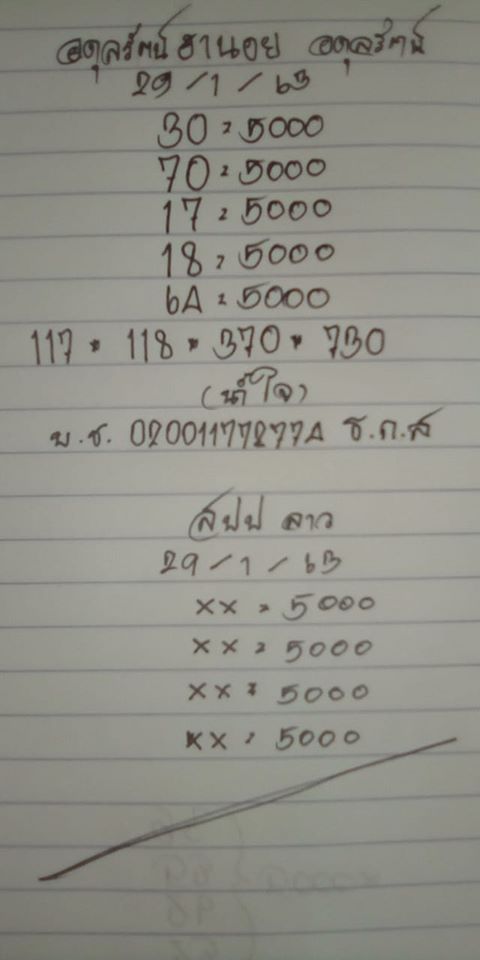 อดุลรัตน์ ฮานอย อดุลรัตน์
29/1/63
30 = 5000
70 = 5000
17 = 5000
18 = 5000
64 = 5000
117 * 118 * 370 * 730
(น้ำใจ)
บ.ช. 020011772774 ธ.ก.ส
สปป ลาว
29/1/63
xx = 5000
xx = 5000
xx = 5000
xx = 5000